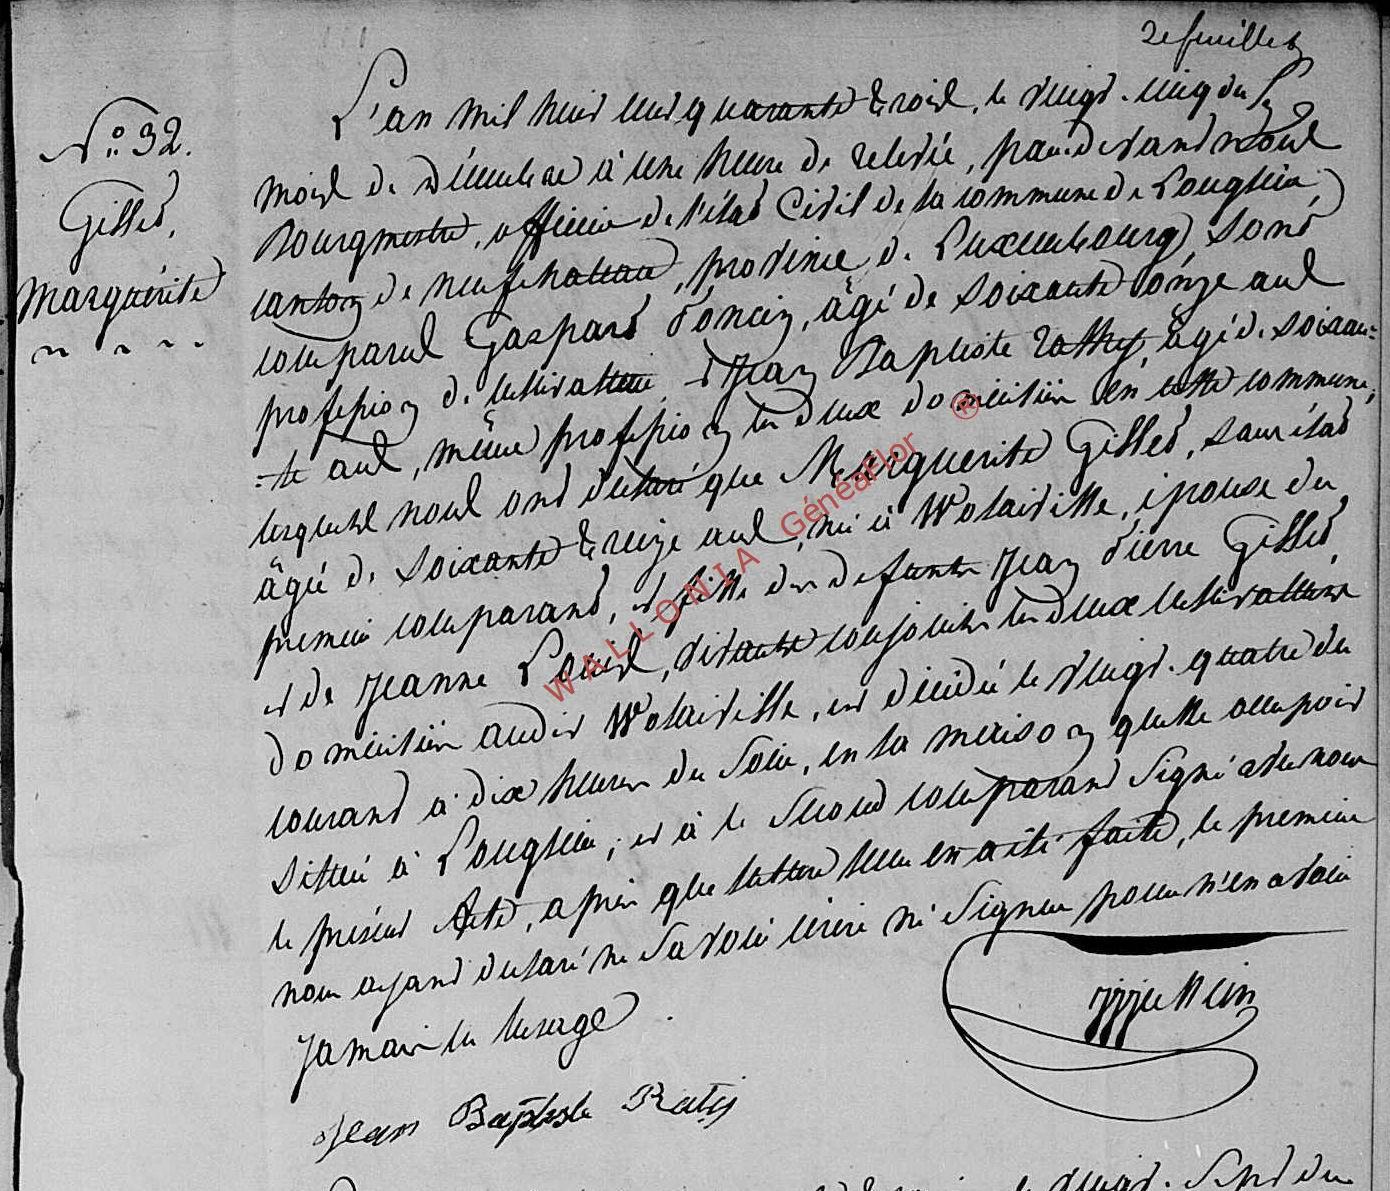 2e feuillet
N° 32.
Gilles,
Marguérite
L'an mil huit cent quarante trois, le vingt-cinq du
mois de Décembre à une heure de relevée, pardevant nous
Bourgmestre, officier de l'état Civil de la commune de Longlier,
canton de neufchateau, province de Luxembourg, sont
comparus Gaspard Poncin, âgé de soixante onze ans
profession de cultivateur et Jean Baptiste rathy, âgé de soixan=
=te ans, même profession les deux domiciliés en cette commune,
lesquels nous ont déclaré que Marguerite Gilles, sans état
âgée de soixante treize ans, née à Wolaiville, épouse du
premier comparant, et fille des defunts Jean Pierre Gilles,
et de Jeanne Louis, vivants conjoints les deux cultivateurs
domiciliés audit Wolaiville, est décédée le vingt-quatre du
courant à dix heures du soir, en la maison quelle occupoit
située à Longlier, et à le second comparant signé avec nous
le présent Acte, après que lecture leur en a été faite, le premier
nous ayant déclaré ne savoir écrire ni signer pour n'en avoir
jamais eu lusage.
Jean Baptiste Ratij
WALLONIA GénéaFlor ®
le vingt-sept du